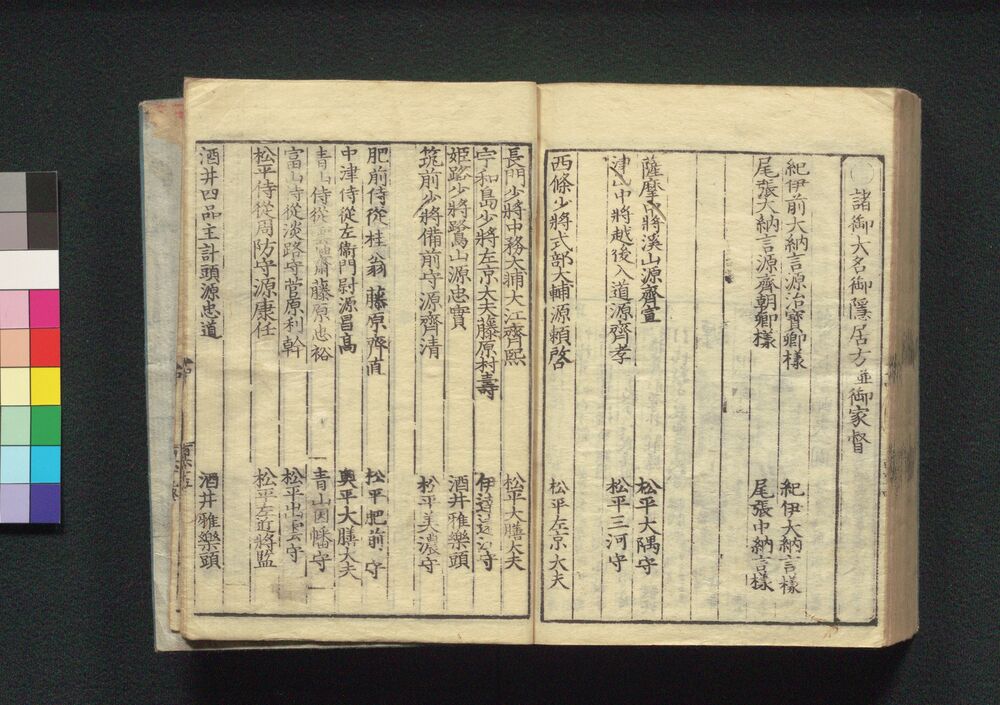 諸御大名御隱居方並御家督
紀伊前大納言源治寶卿様 紀伊大納言様
尾張大納言源齊朝卿様 尾張中納言様
薩摩中將溪山源齊宣 松平大隅守
津山中將越後入道源齊孝 松平三河守
西條少將式部大輔源頼啓 松平左京大夫
長門少將中務大輔大江齊熙 松平大膳大夫
宇和島少將左京大夫藤原村壽 伊達守
姫路少將鷺山源忠實 酒井雅樂頭
筑前少將備前守源齊清 松平美濃守
肥前侍從桂翁藤原齊直 松平肥前守
中津侍從左衞門尉源昌高 奥平大膳大夫
青山侍從齋藤原忠裕 青山因幡守
富山侍從淡路守菅原利幹 松平出雲守
松平侍從周防守源康任 松平左近將監
酒井四品主計頭源忠道 酒井雅樂頭